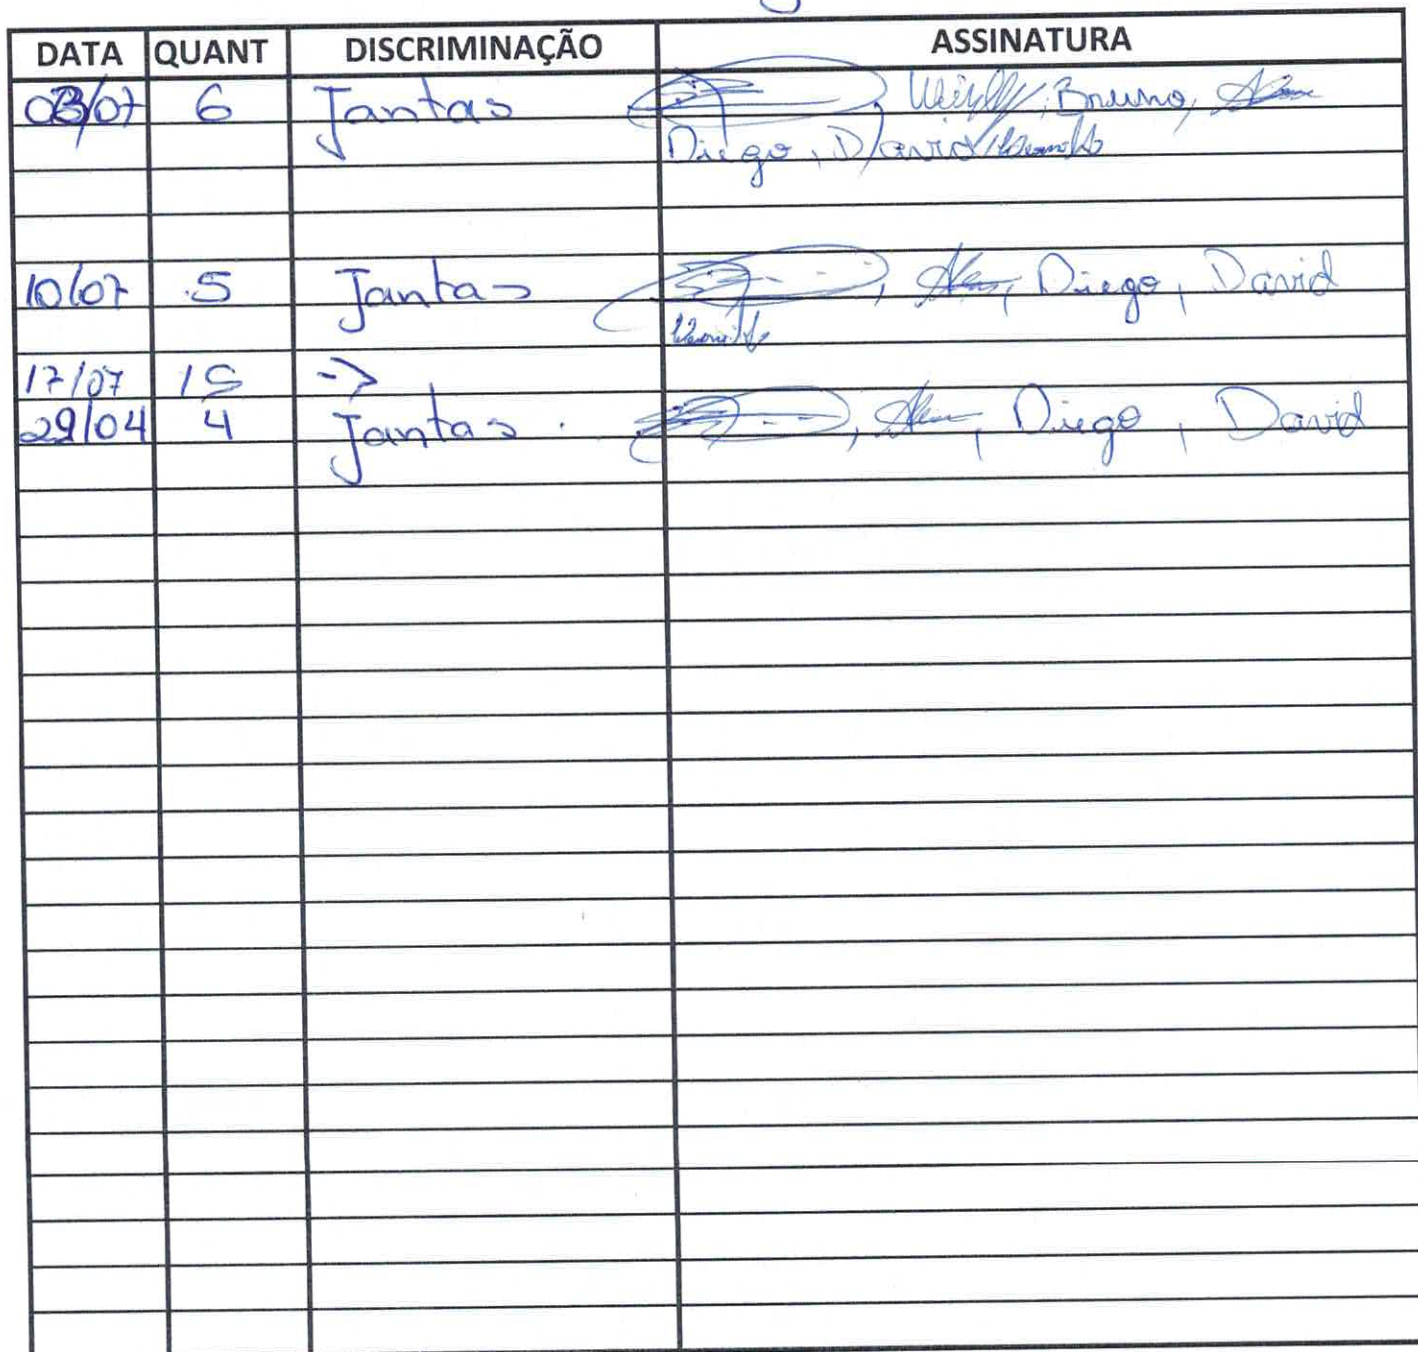 DATA QUANT DISCRIMINAÇÃO ASSINATURA
03/07 6 Jantas , Bruno,
Diego, David
10/07 5 Jantas , Diego, David
17/07 ->
29/04 4 Jantas . , Diego, David